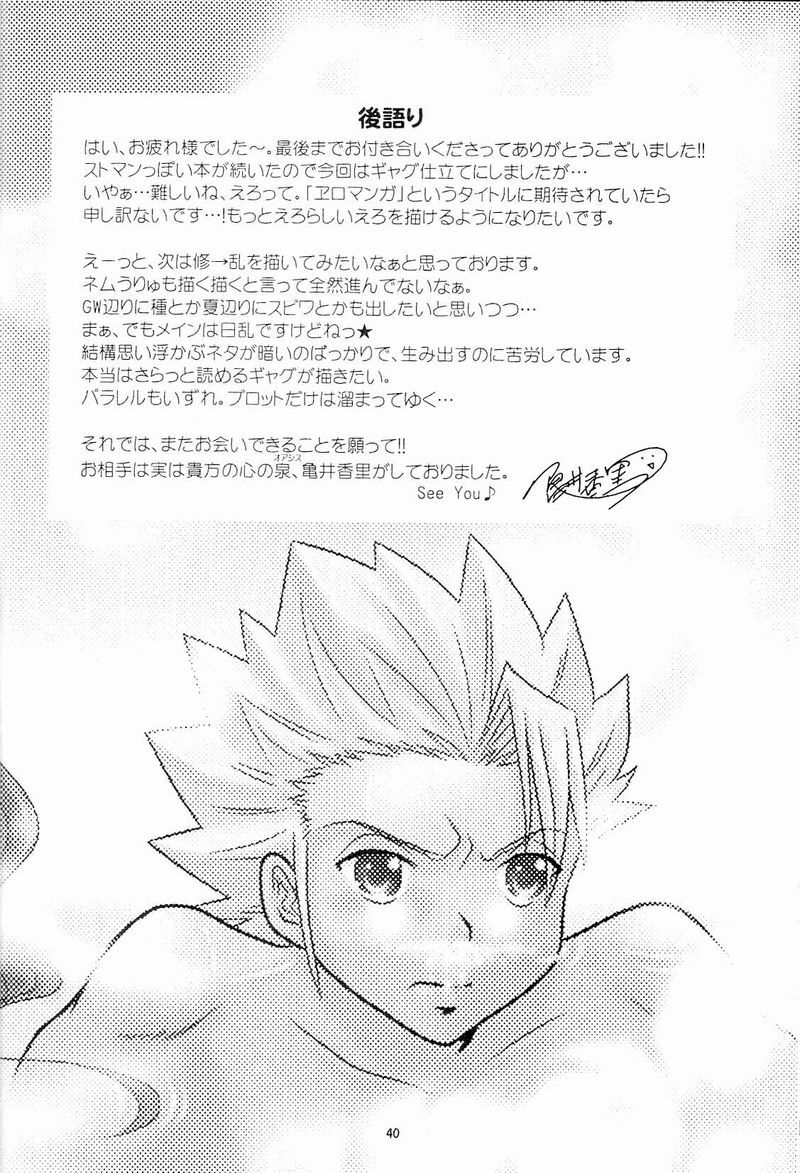 後語り
はい、お疲れ様でした～。最後までお付き合いくださってありがとうございました!!
ストマンっぽい本が続いたので今回はギャグ仕立てにしましたが…
いやぁ…難しいね、えろって。「ヱロマンガ」というタイトルに期待されていたら
申し訳ないです…!もっとえろらしいえろを描けるようになりたいです。
えーっと、次は修→乱を描いてみたいなぁと思っております。
ネムうりゅも描く描くと言って全然進んでないなぁ。
GW辺りに種とか夏辺りにスピワとかも出したいと思いつつ…
まぁ、でもメインは日乱ですけどねっ★
結構思い浮かぶネタが暗いのばっかりで、生み出すのに苦労しています。
本当はさらっと読めるギャグが描きたい。
パラレルもいずれ。プロットだけは溜まってゆく…
それでは、またお会いできることを願って!!
オアシス
お相手は実は貴方の心の泉、亀井香里がしておりました。
See You♪
亀井香里
40